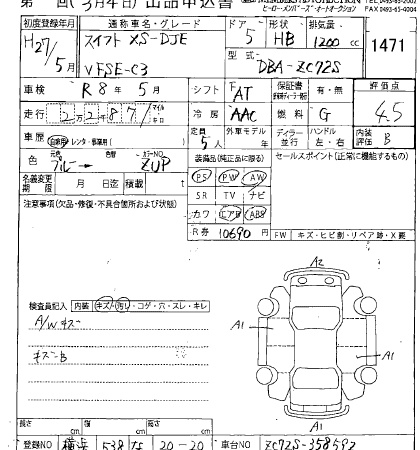 TEL 0493-65-2002
ヒーロー・メンバーズ・オートオークション FAX 0493-65-4004
初度登録年月 通称車名・グレード ドア 形状 排気量
H27/5月 スイフト XS-DJE 5 HB 1200 cc 1471
型式
VFSE-C3 DBA-ZC72S
車検 R8年5月 シフト FAT 保証書 有・無 評価点
走行 2万2,877 マイル キロ 冷房 AAC 燃料 G 4.5
車歴 自家用 レンタ・事業用( ) 定員 5人 外車モデル 年 ディーラー 並行 ハンドル 左・右 内装評価 B
色 元色 ブルー → 色替 カラーNO ZUP 装備品(純正品に限る) セールスポイント(正常に機能するもの)
名義変更期限 月 日迄 積載 t PS PW AW
注意事項(欠品・修復・不具合箇所および状態) SR TV ナビ
カワ エアB ABS
R券 10690 円 FW キズ・ヒビ割・リペア跡・X要
検査員記入 内装 キズ・汚し・コゲ・穴・スレ・キレ
A2
A/Wキズ
A1
キズ-B
A1
A1
長さ cm 幅 cm 高さ cm
登録NO 横浜 538 な 20-20 車台NO ZC72S-358592